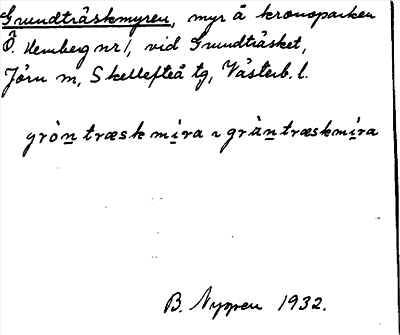 Grundträskmyren, myr å kronoparken
Ö. Hemberg nr 1, vid Grundträsket,
Jörn sn, Skellefteå tg, Västerb. l.
gròn træsk mi̱ra ~ gràn træskmi̱ra
B. Nyman 1932.